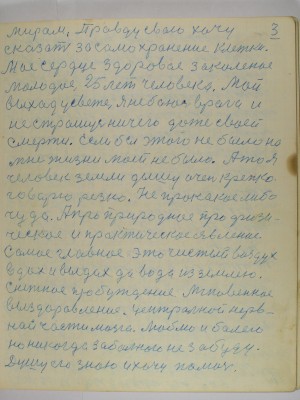 мирам. Правду свою хочу 3
сказат за само хранение клетки.
Мае сердце здоровае закаленае
молодое, 25 лет человека. Мой
выход у свете, я не баюс врага и
не страшус ничего даже своей
смерти. Если бы этого не было на
мне жизни моей не было. А то я
человек земли дышу очен крепко
говарю резко. Не про какое либо
чуда. А про природнае про физи-
ческое и практическое явление.
Самое главное это чистый воздух
вдох и выдах да вода из землею.
снежное пробуждение мгновенное
выздаравление. централной нерв-
най части мозга. Люблю и балею
но никогда заболного не забуду.
Душу его знаю и хочу помоч.